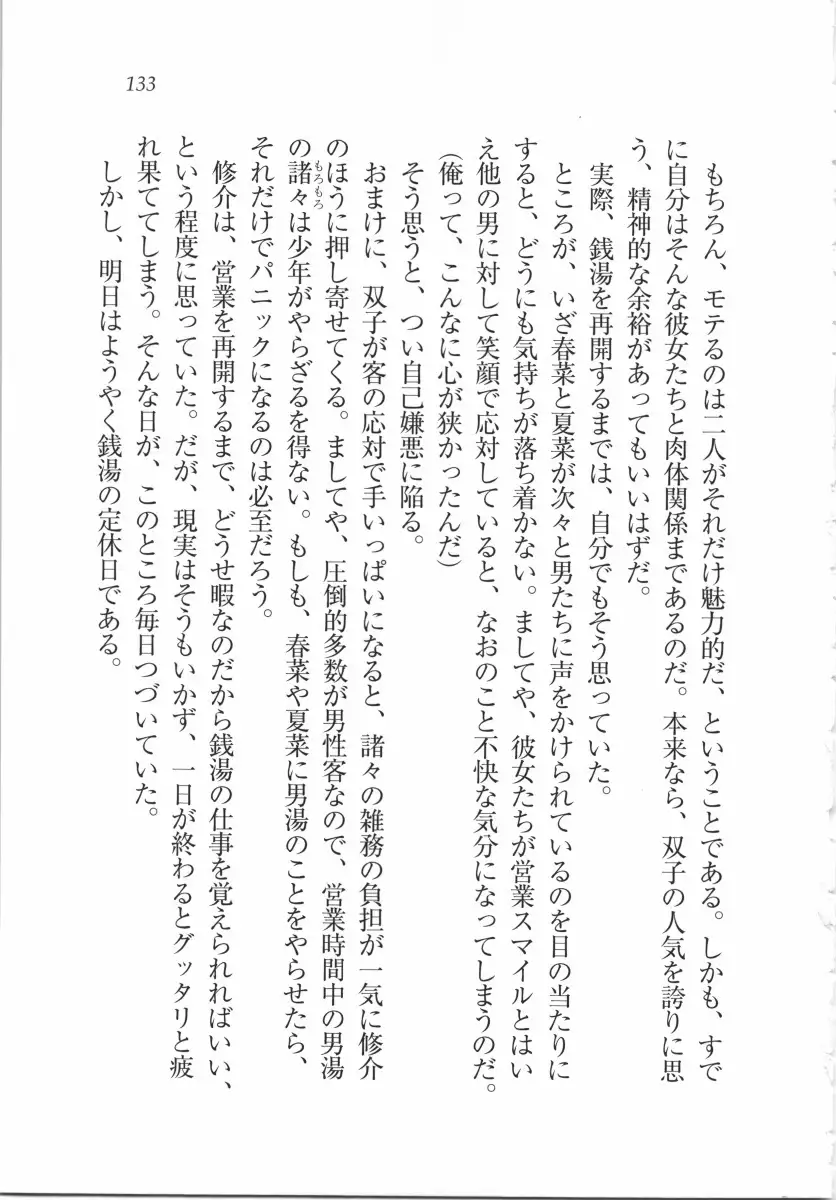 133
もちろん、モテるのは二人がそれだけ魅力的だ、ということである。しかも、すで
に自分はそんな彼女たちと肉体関係まであるのだ。本来なら、双子の人気を誇りに思
う、精神的な余裕があってもいいはずだ。
実際、銭湯を再開するまでは、自分でもそう思っていた。
ところが、いざ春菜と夏菜が次々と男たちに声をかけられているのを目の当たりに
すると、どうにも気持ちが落ち着かない。ましてや、彼女たちが営業スマイルとはい
え他の男に対して笑顔で応対していると、なおのこと不快な気分になってしまうのだ。
(俺って、こんなに心が狭かったんだ)
そう思うと、つい自己嫌悪に陥る。
おまけに、双子が客の応対で手いっぱいになると、諸々の雑務の負担が一気に修介
のほうに押し寄せてくる。ましてや、圧倒的多数が男性客なので、営業時間中の男湯
の諸々は少年がやらざるを得ない。もしも、春菜や夏菜に男湯のことをやらせたら、
もろもろ
それだけでパニックになるのは必至だろう。
修介は、営業を再開するまで、どうせ暇なのだから銭湯の仕事を覚えられればいい、
という程度に思っていた。だが、現実はそうもいかず、一日が終わるとグッタリと疲
れ果ててしまう。そんな日が、このところ毎日つづいていた。
しかし、明日はようやく銭湯の定休日である。